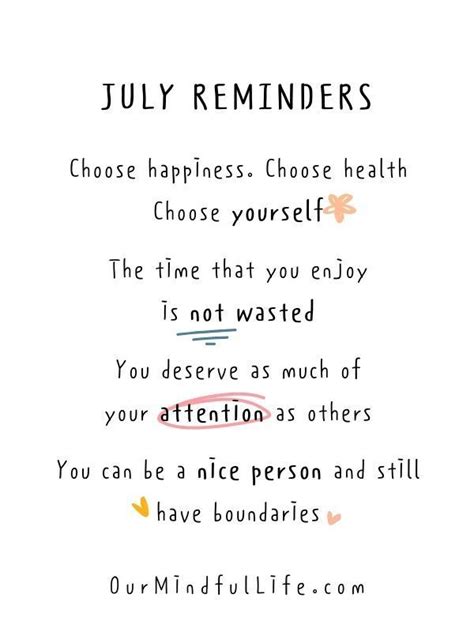 JULY REMINDERS
Choose happiness. Choose health
Choose yourself
The time that you enjoy
is not wasted
You deserve as much of
your attention as others
You can be a nice person and still
have boundaries
OurMindfulLife.com